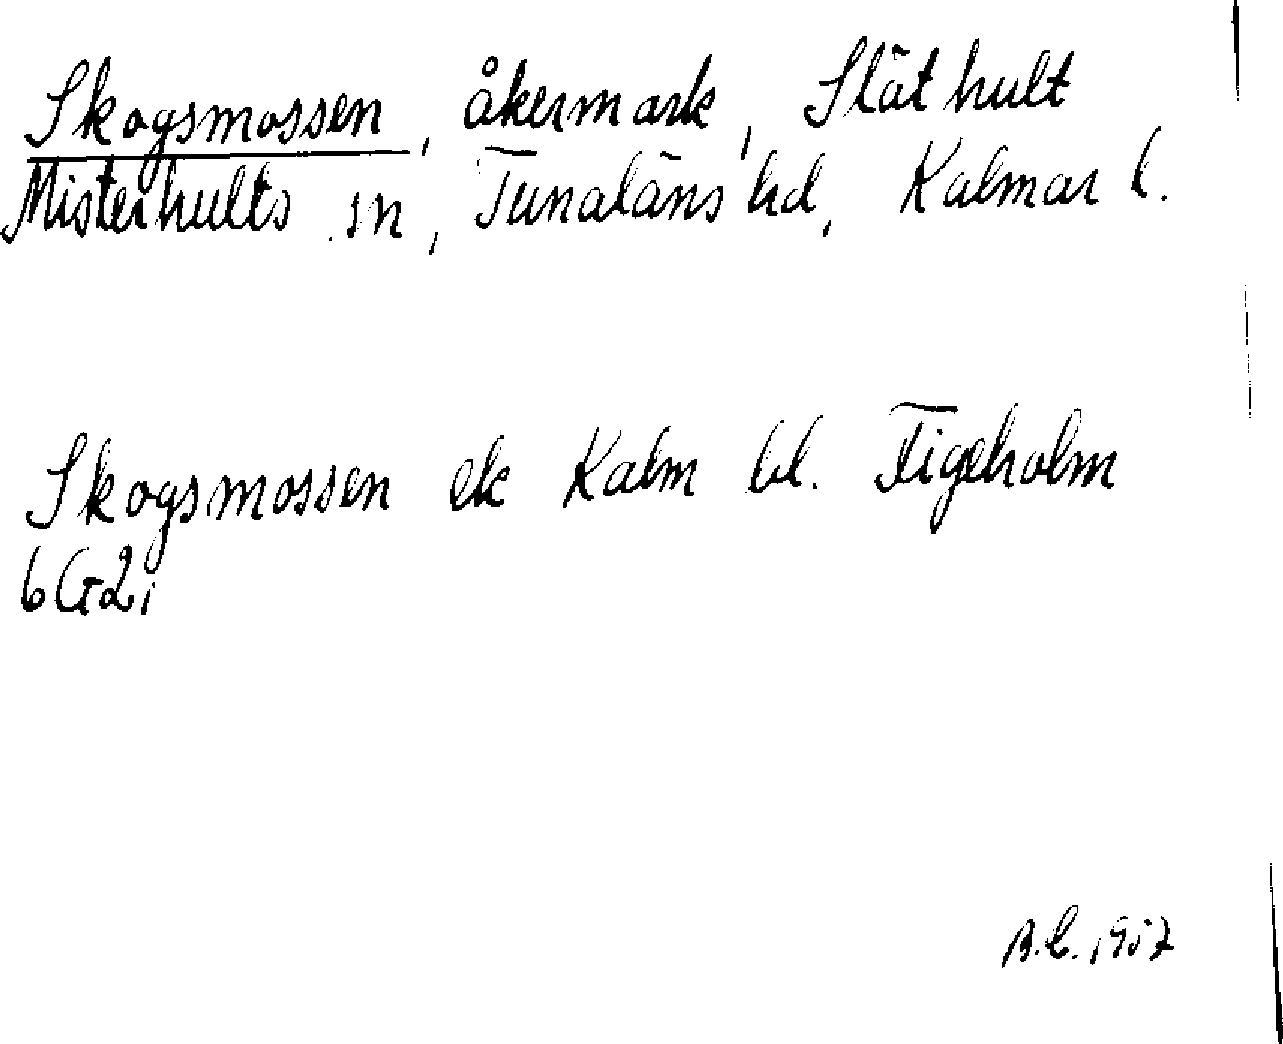 Skogsmossen, åkermark, Släthult
Misterhults sn, Tunaläns hd, Kalmar l.
Skogsmossen ek Kalm bl. Figeholm
6G2i
A.C. 1957